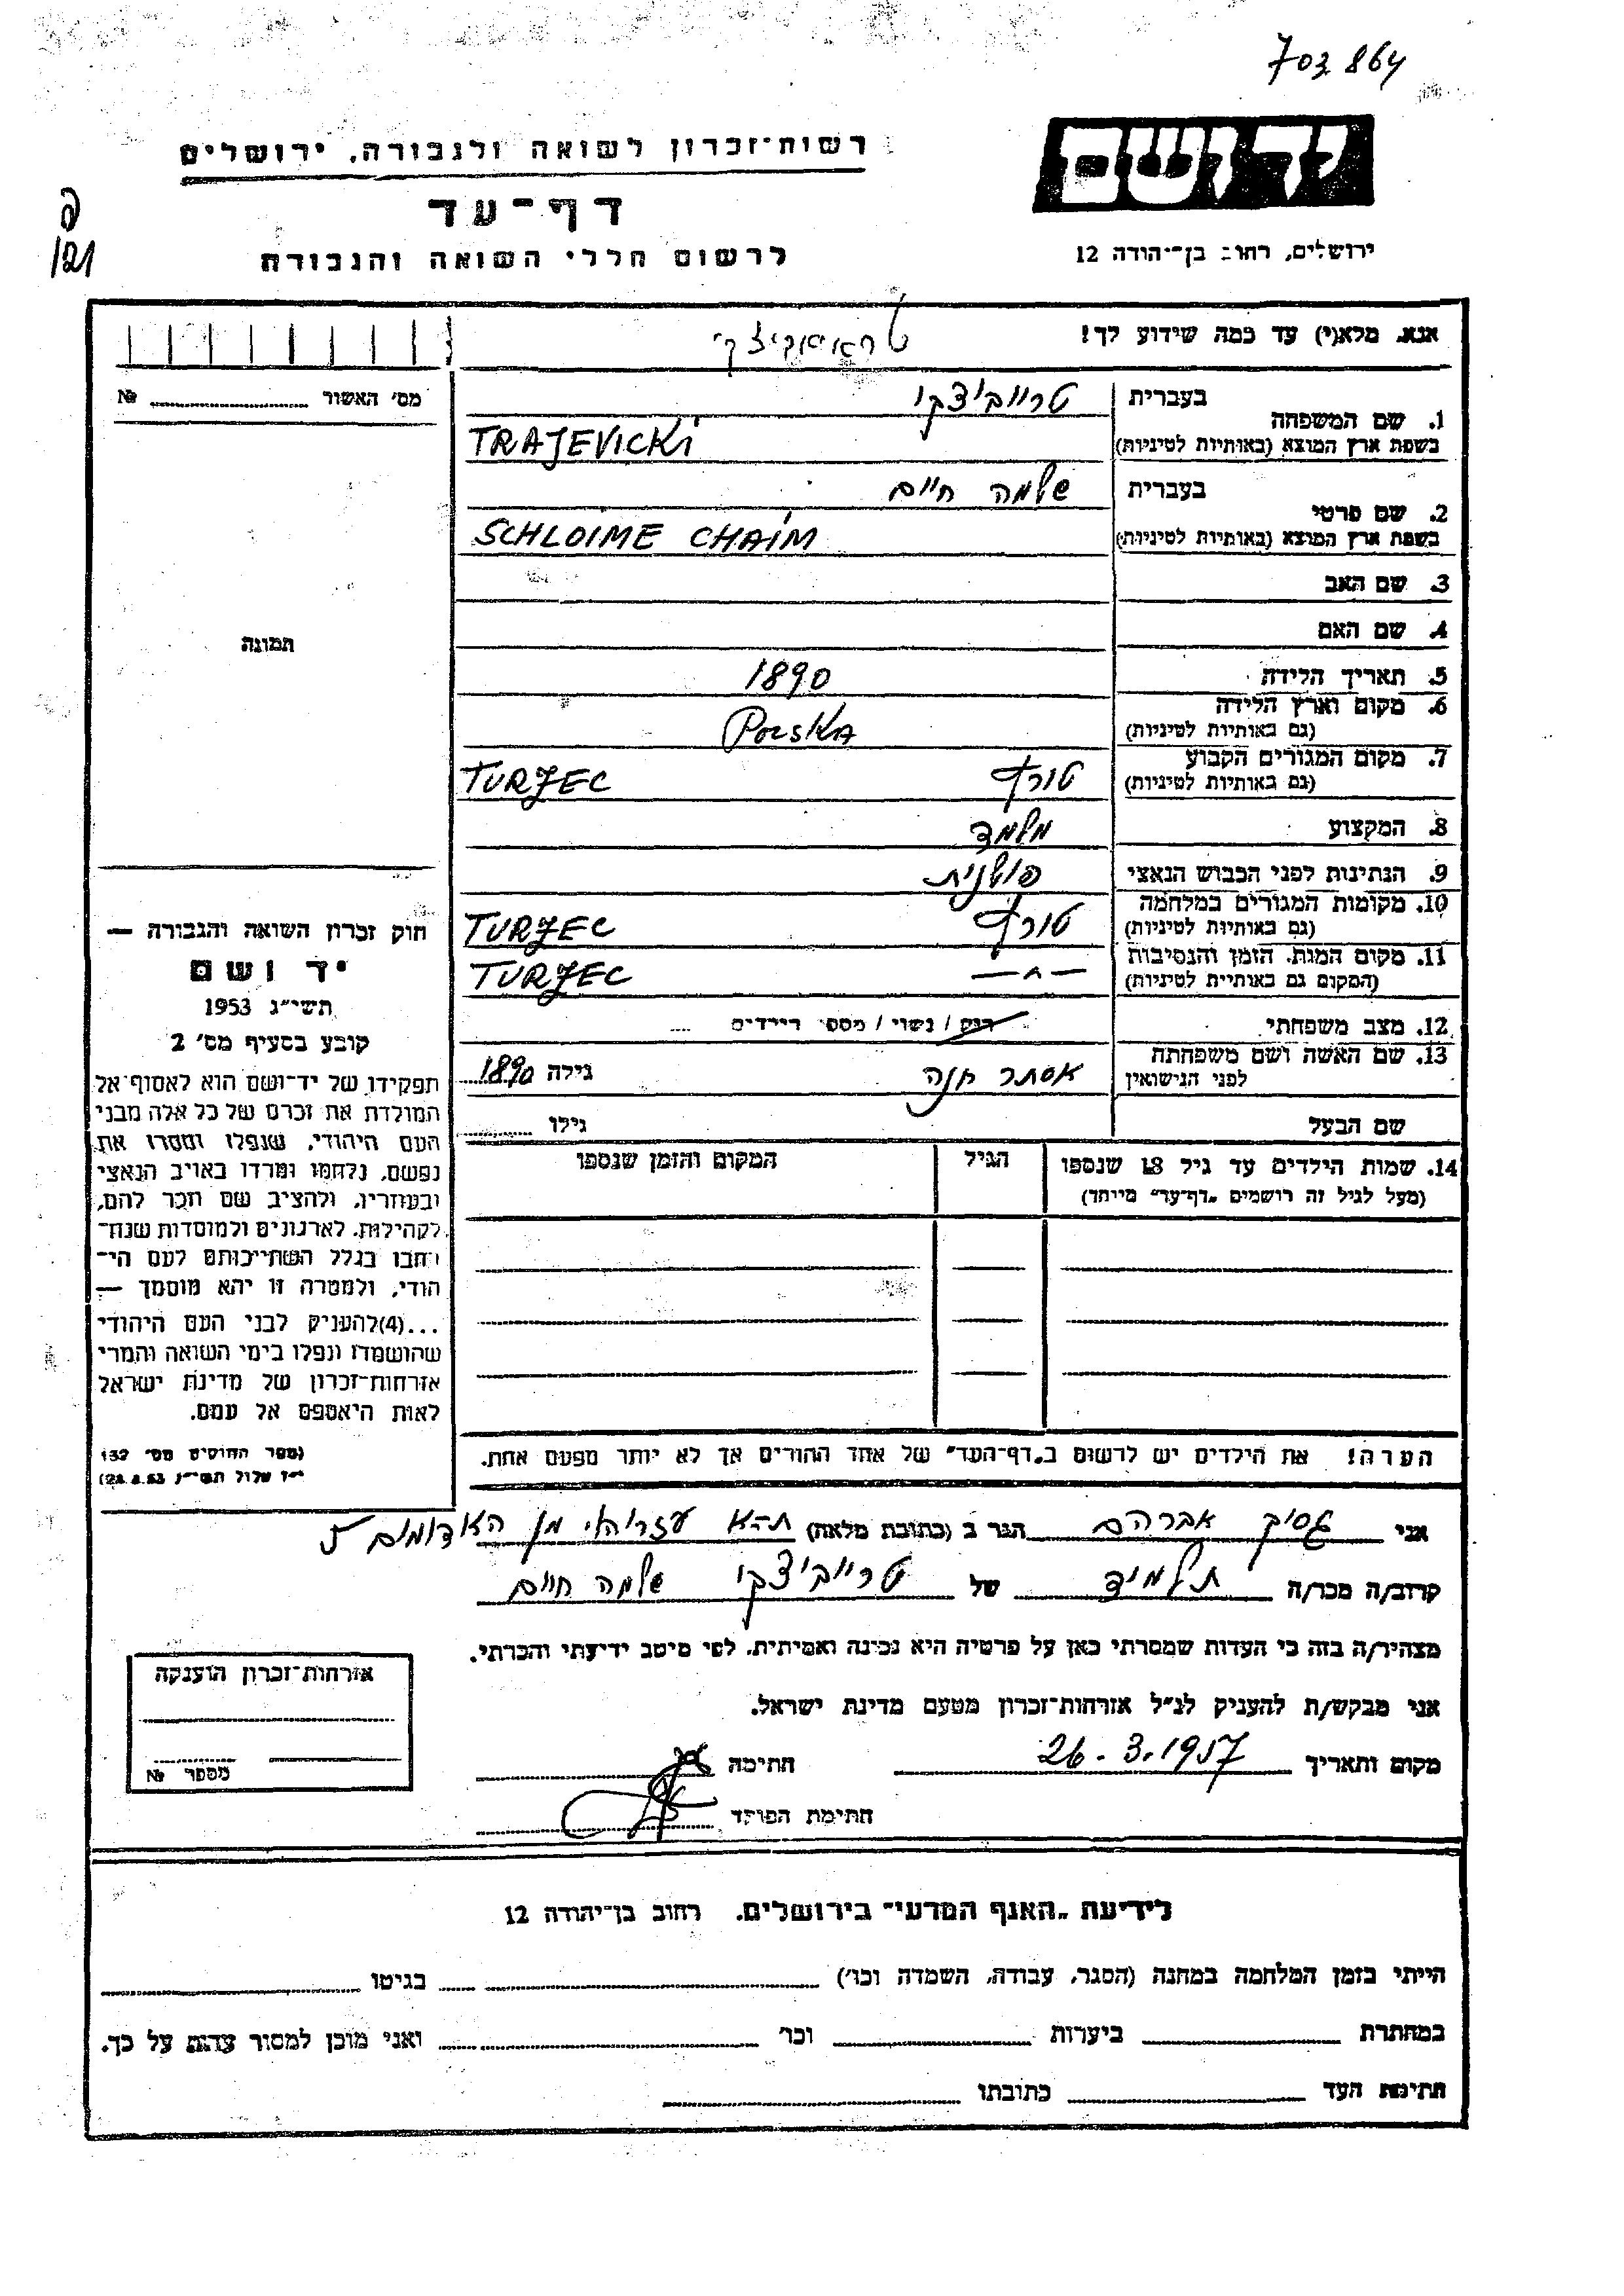 703864
יד ושם
רשות־זכרון לשואה ולגבורה, ירושלים
דף־עד
לרשום חללי השואה והגבורה
ירושלים, רחוב בן־יהודה 12
121
אנא, מלא(י) עד כמה שידוע לך!
מס' האשור № 
1. שם המשפחה
בעברית טרייביצקי
בשפת ארץ המוצא (באותיות לטיניות) TRAJEVICKI
2. שם פרטי
בעברית שלמה חיים
בשפת ארץ המוצא (באותיות לטיניות) SCHLOIME CHAIM
3. שם האב
4. שם האם
5. תאריך הלידה 1890
6. מקום וארץ הלידה
(גם באותיות לטיניות) POLSKA
7. מקום המגורים הקבוע
(גם באותיות לטיניות) טורץ TURZEC
8. המקצוע מלמד
9. הנתינות לפני הכבוש הנאצי פולנית
10. מקומות המגורים במלחמה
(גם באותיות לטיניות) טורץ TURZEC
11. מקום המות, הזמן והנסיבות
(המקום גם באותיות לטיניות) —״— TURZEC
12. מצב משפחתי רוק / נשוי / מספר הילדים
13. שם האשה ושם משפחתה
לפני הנישואין אסתר חנה גילה 1890
שם הבעל גילו
14. שמות הילדים עד גיל 18 שנספו הגיל המקום והזמן שנספו
(מעל לגיל זה רושמים „דף־עד" מיוחד)
הערה! את הילדים יש לרשום ב„דף־העד" של אחד ההורים אך לא יותר מפעם אחת.
תמונה
חוק זכרון השואה והגבורה —
יד ושם
תשי"ג 1953
קובע בסעיף מס' 2
תפקידו של יד־ושם הוא לאסוף אל
המולדת את זכרם של כל אלה מבני
העם היהודי, שנפלו ומסרו את
נפשם, נלחמו ומרדו באויב הנאצי
ובעוזריו, ולהציב שם וזכר להם,
לקהילות, לארגונים ולמוסדות שנח־
רבו בגלל השתייכותם לעם הי־
הודי, ולמטרה זו יהא מוסמך —
...(4) להעניק לבני העם היהודי
שהושמדו ונפלו בימי השואה והמרי
אזרחות־זכרון של מדינת ישראל
לאות היאספם אל עמם.
(ספר החוקים מס' 132
י"ז אלול תשי"ג 28.8.53)
אני גסיק אברהם הגר ב (כתובת מלאה) ת-א עזריה מן האדומים 5
קרוב/ה מכר/ה תלמיד של טרייביצקי שלמה חיים
מצהיר/ה בזה כי העדות שמסרתי כאן על פרטיה היא נכונה ואמיתית, לפי מיטב ידיעתי והכרתי.
אני מבקש/ת להעניק לנ"ל אזרחות־זכרון מטעם מדינת ישראל.
מקום ותאריך 26.3.1957 חתימה
חתימת הפוקד
אזרחות־זכרון הוענקה
מספר №
לידיעת „האגף המדעי" בירושלים, רחוב בן־יהודה 12
הייתי בזמן המלחמה במחנה (הסגר, עבודה, השמדה וכו') בגיטו
במחתרת ביערות וכו' ואני מוכן למסור עדות על כך.
חתימת העד כתובתו